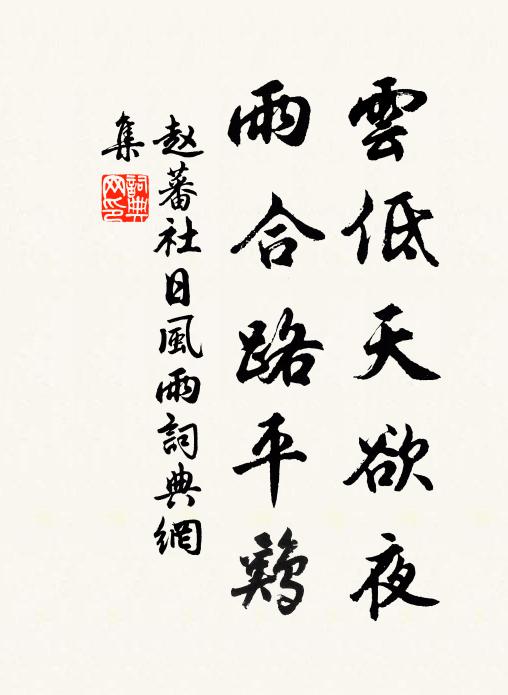 雲低天欲夜
雨合路平鷄
赵蕃社日風雨詞典網
集
詞典
网印